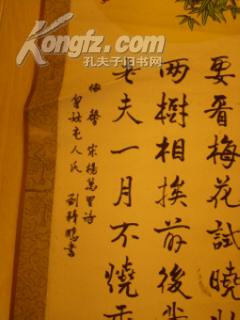 Kongfz.com
孔夫子旧书网
要看梅花試曉妝
两樹相挨前後發
老夫一月不燒香
宋楊萬里詩
老人氏
書